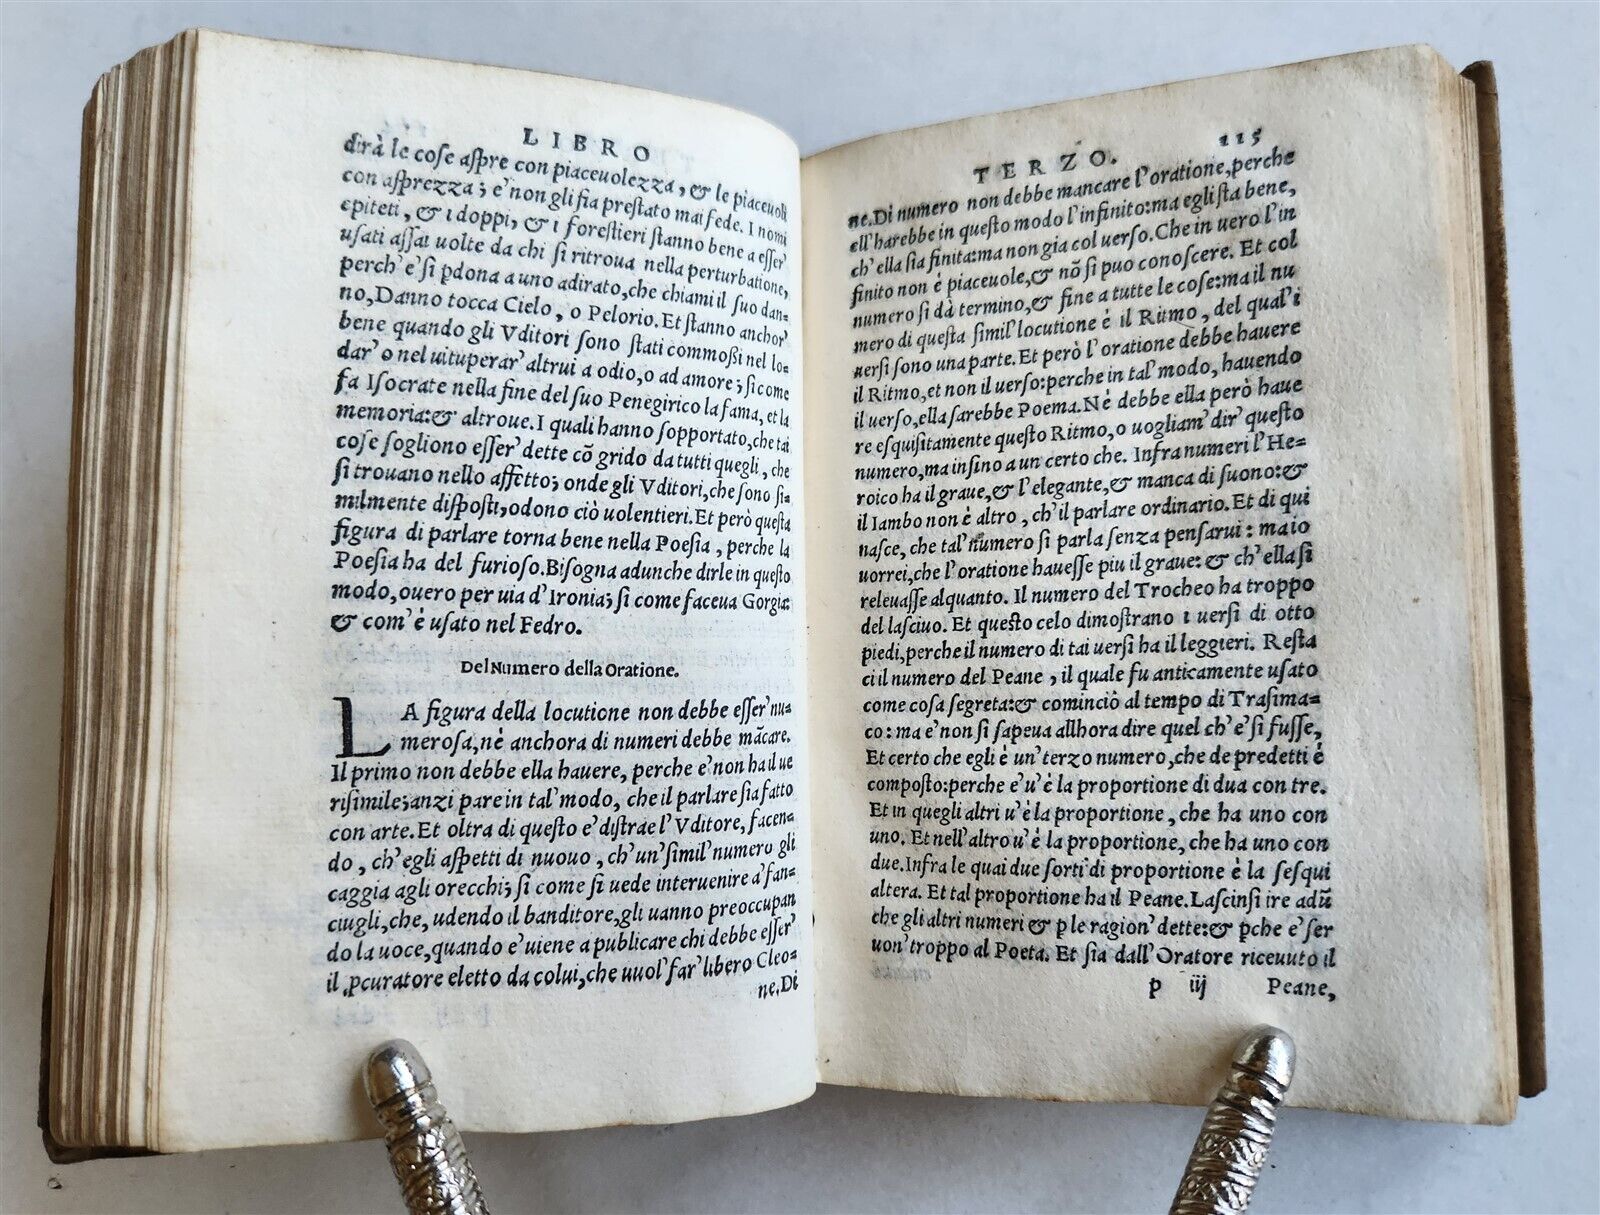 LIBRO
dirà le cose aspre con piaceuolezza, & le piaceuoli
con asprezza; e' non gli fia prestato mai fede. I nomi
epiteti, & i doppi, & i forestieri stanno bene a esser'
usati assai uolte da chi si ritroua nella perturbatione,
perch' e' si pdona a uno adirato, che chiami il suo dan-
no, Danno tocca Cielo, o Pelorio. Et stanno anchor'
bene quando gli Vditori sono stati commoßi nel lo-
dar' o nel uituperar' altrui a odio, o ad amore; si come
fa Isocrate nella fine del suo Penegirico la fama, et la
memoria: & altroue. I quali hanno sopportato, che tai
cose sogliono esser' dette cō grido da tutti quegli, che
si trouano nello affetto; onde gli Vditori, che sono si-
milmente disposti, odono ciò uolentieri. Et però questa
figura di parlare torna bene nella Poesia, perche la
Poesia ha del furioso. Bisogna adunche dirle in questo
modo, ouero per uia d'Ironia; si come faceua Gorgia:
& com' è usato nel Fedro.
Del Numero della Oratione.
LA figura della locutione non debbe esser' nu-
merosa, nè anchora di numeri debbe mācare.
Il primo non debbe ella hauere, perche e' non ha il ue
risimile; anzi pare in tal' modo, che il parlare sia fatto
con arte. Et oltra di questo e' distrae l'Vditore, facen-
do, ch' egli aspetti di nuouo, ch' un' simil' numero gli
caggia agli orecchi; si come si uede interuenire a' fan-
ciugli, che, udendo il banditore, gli uanno preoccupan
do la uoce, quando e' uiene a publicare chi debbe esser'
il pcuratore eletto da colui, che uuol' far' libero Cleo-
ne. Di
TERZO. 115
ne. Di numero non debbe mancare l'oratione, perche
ell' harebbe in questo modo l'infinito: ma egli sta bene,
ch' ella sia finita: ma non gia col uerso. Che in uero l'in
finito non è piaceuole, & nō si puo conoscere. Et col
numero si dà termino, & fine a tutte le cose: ma il nu
mero di questa simil' locutione è il Ritmo, del qual' i
uersi sono una parte. Et però l'oratione debbe hauere
il Ritmo, et non il uerso: perche in tal' modo, hauendo
il uerso, ella sarebbe Poema. Nè debbe ella però haue
re esquisitamente questo Ritmo, o uogliam' dir' questo
numero, ma insino a un certo che. Infra numeri l'He-
roico ha il graue, & l'elegante, & manca di suono: &
il Iambo non è altro, ch' il parlare ordinario. Et di qui
nasce, che tal' numero si parla senza pensarui: ma io
uorrei, che l'oratione hauesse piu il graue: & ch' ella si
releuasse alquanto. Il numero del Trocheo ha troppo
del lasciuo. Et questo celo dimostrano i uersi di otto
piedi, perche il numero di tai uersi ha il leggieri. Resta
ci il numero del Peane, il quale fu anticamente usato
come cosa segreta: & cominciò al tempo di Trasima-
co: ma e' non si sapeua allhora dire quel ch' e' si fusse,
Et certo che egli è un' terzo numero, che de predetti è
composto: perche e' u' è la proportione di dua con tre.
Et in quegli altri u' è la proportione, che ha uno con
uno. Et nell' altro u' è la proportione, che ha uno con
due. Infra le quai due sorti di proportione è la sesqui
altera. Et tal proportione ha il Peane. Lascinsi ire adū
che gli altri numeri & p le ragion' dette: & pche e' ser
uon' troppo al Poeta. Et sia dall' Oratore riceuuto il
p iij Peane,